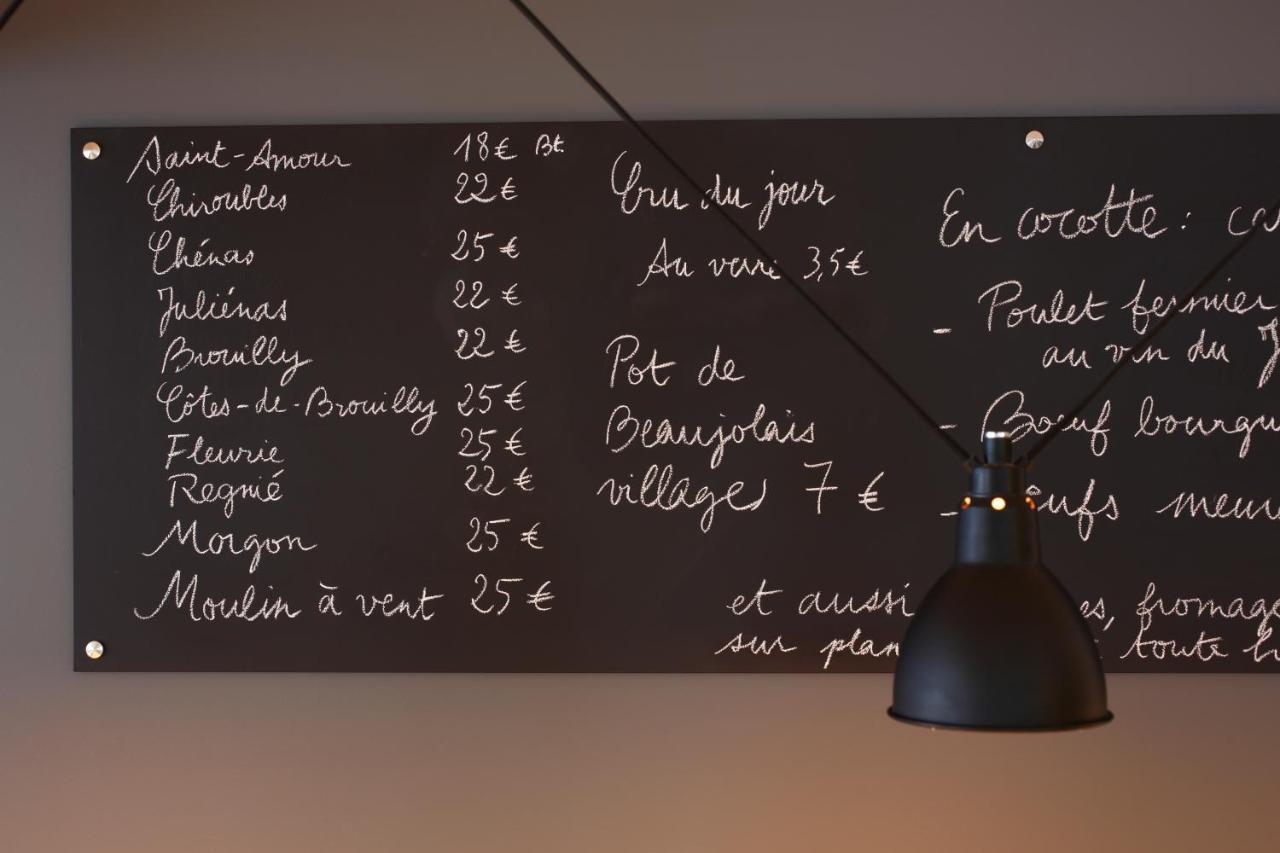 Saint-Amour 18€ Bt.
Chiroubles 22€
Chénas 25€
Juliénas 22€
Brouilly 22€
Côtes-de-Brouilly 25€
Fleurie 25€
Regnié 22€
Morgon 25€
Moulin à vent 25€
Cru du jour
Au verre 3,5€
Pot de
Beaujolais
villages 7€
En cocotte :
- Poulet fermier
au vin du
- Bœuf
-
et aussi
sur toute